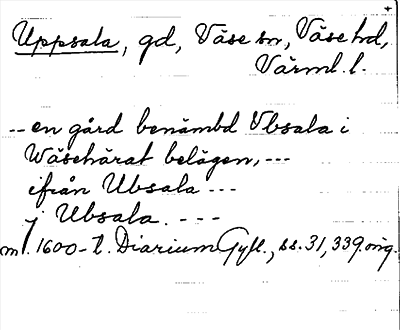 Uppsala, gd, Väse sn, Väse hd,
Värml. l.
-- en gård benämbd Vbsala i
Wäsehärat belägen, ---
ifrån Ubsala ---
j Ubsala. ---
m. 1600-t. Diarium Gyll., ss. 31, 339. orig.